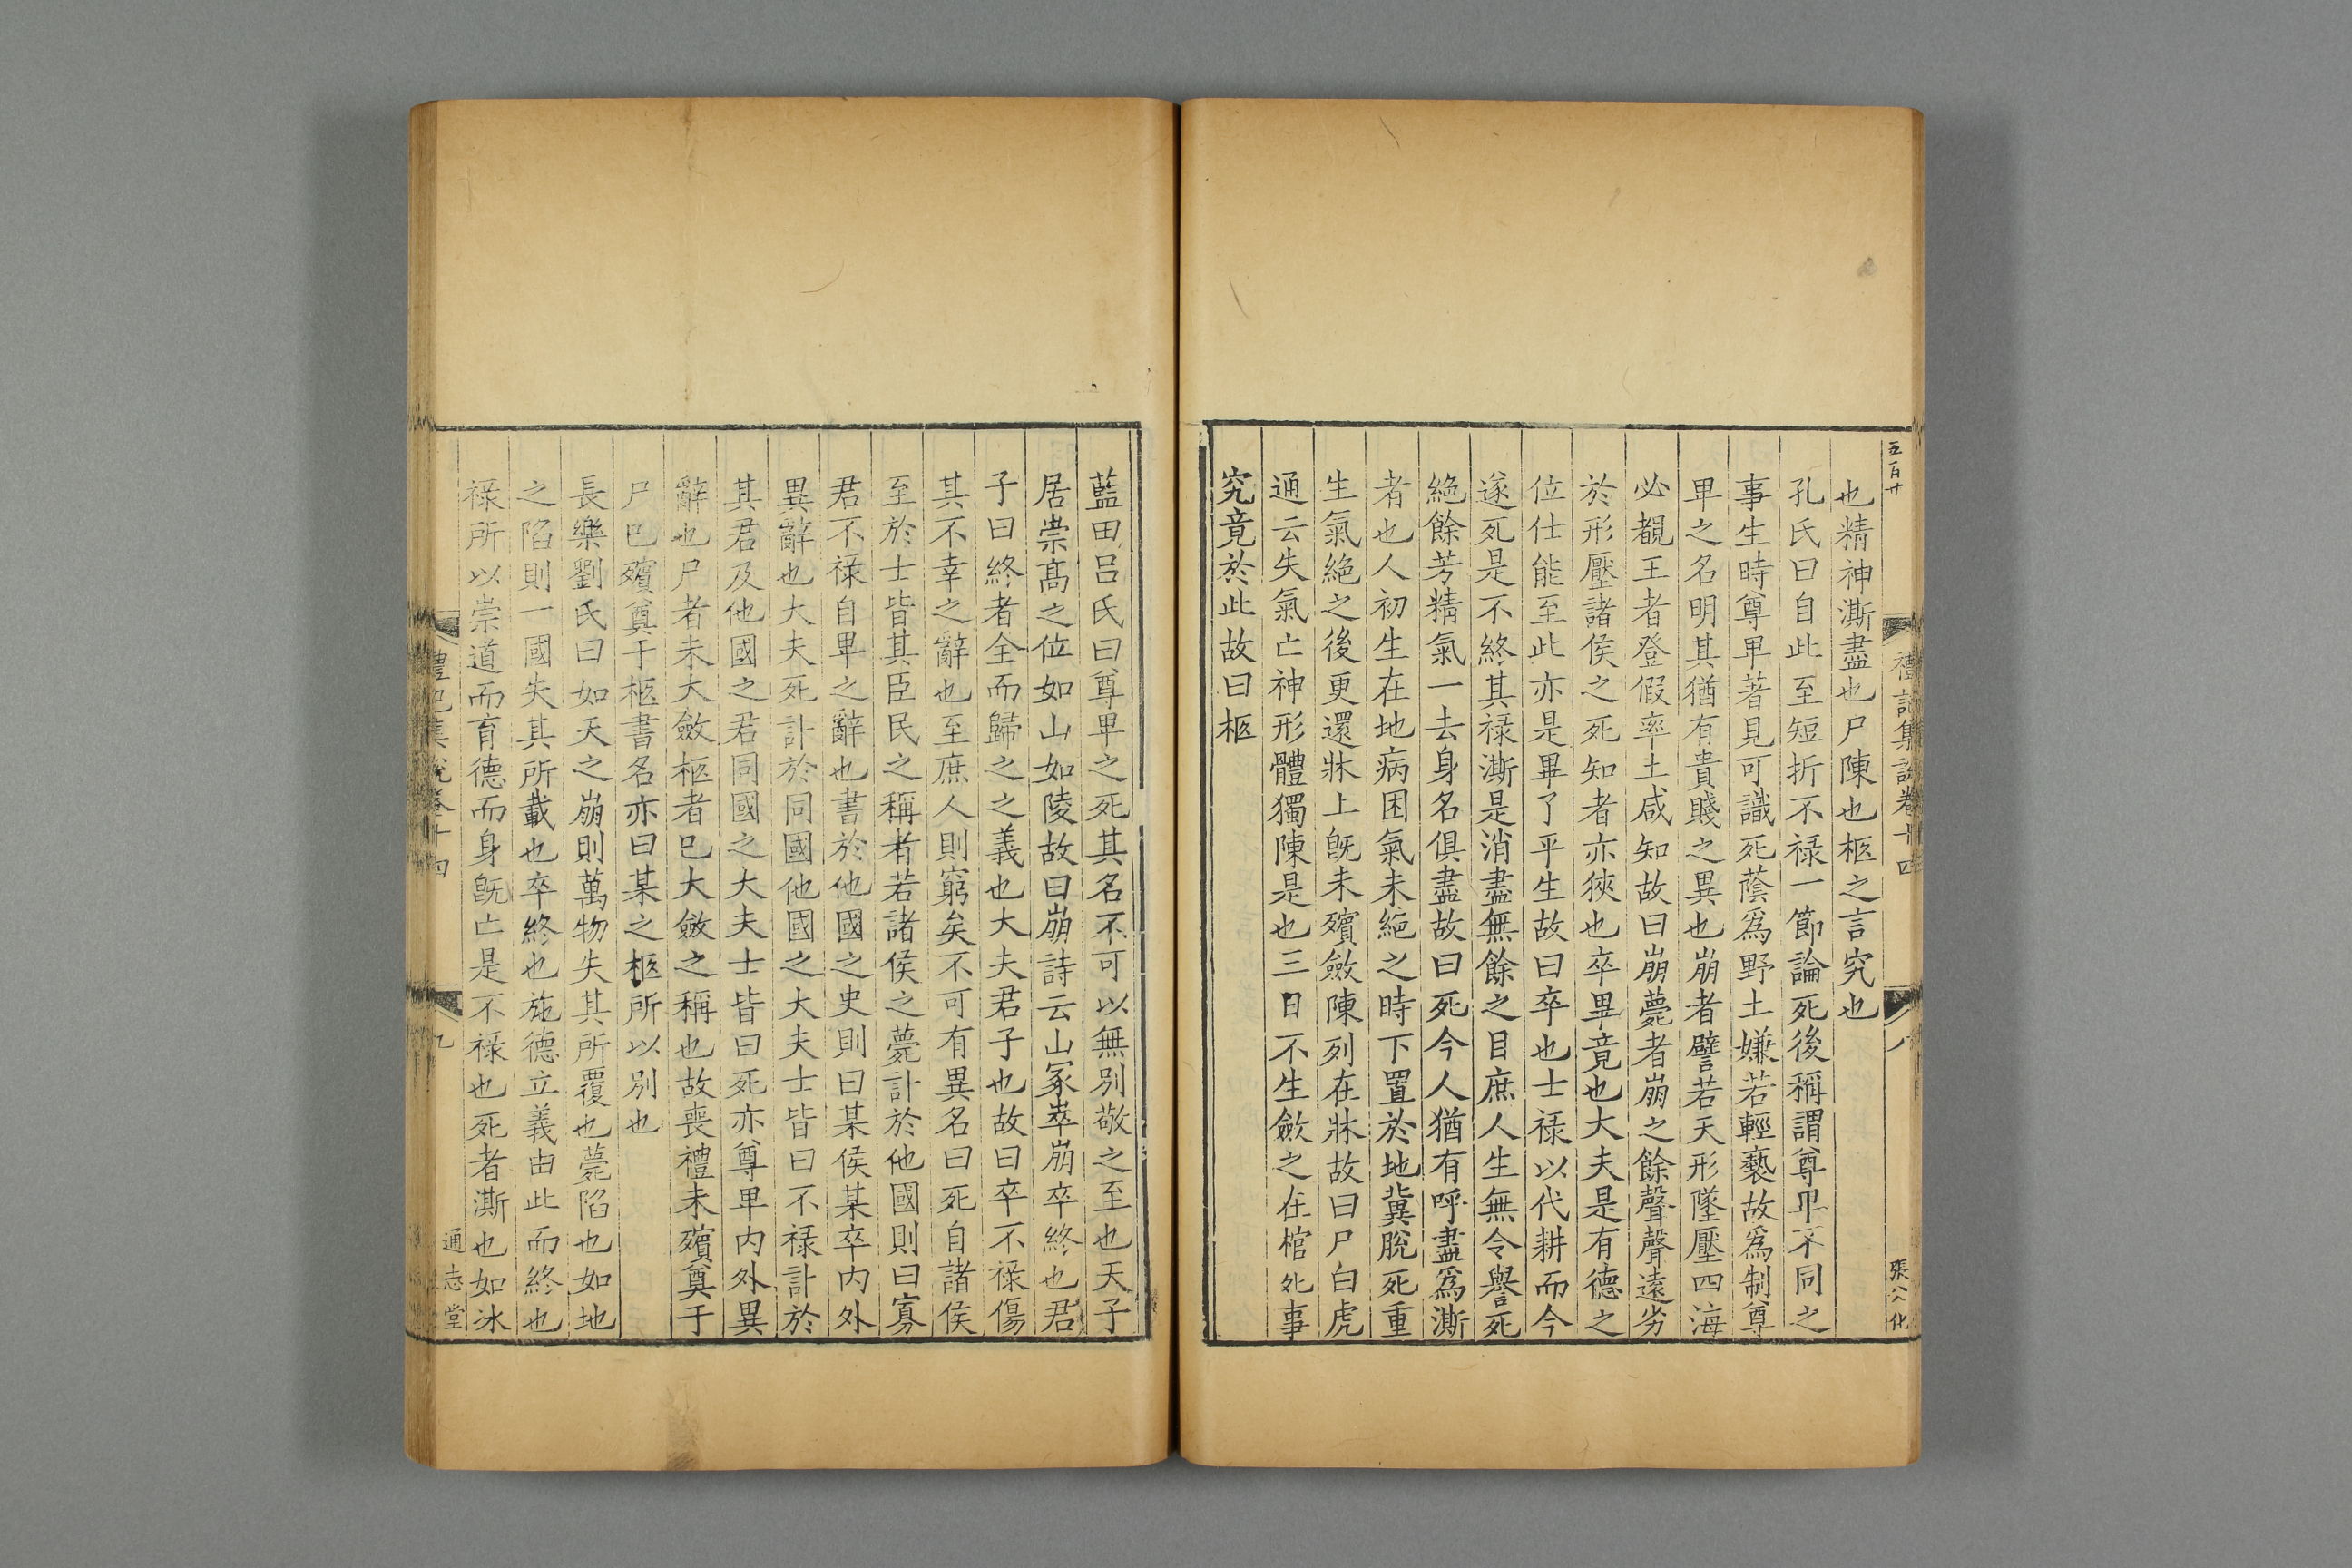 五百廿
禮記集說卷十四
八
張公化
也精神澌盡也尸陳也柩之言究也
孔氏曰自此至短折不祿一節論死後稱謂尊卑不同之
事生時尊卑著見可識死蔭爲野土嫌若輕褻故爲制尊
卑之名明其猶有貴賤之異也崩者譬若天形墜壓四海
必覩王者登假率土咸知故曰崩薨者崩之餘聲聲遠劣
於形壓諸侯之死知者亦狹也卒畢竟也大夫是有德之
位仕能至此亦是畢了平生故曰卒也士祿以代耕而今
遂死是不終其祿澌是消盡無餘之目庶人生無令譽死
絕餘芳精氣一去身名俱盡故曰死今人猶有呼盡爲澌
者也人初生在地病困氣未絕之時下置於地冀脫死重
生氣絕之後更還牀上旣未殯斂陳列在牀故曰尸白虎
通云失氣亡神形體獨陳是也三日不生斂之在棺死事
究竟於此故曰柩
藍田呂氏曰尊卑之死其名不可以無別敬之至也天子
居崇高之位如山如陵故曰崩詩云山冢崒崩卒終也君
子曰終者全而歸之之義也大夫君子也故曰卒不祿傷
其不幸之辭也至庶人則窮矣不可有異名曰死自諸侯
至於士皆其臣民之稱者若諸侯之薨計於他國則曰寡
君不祿自卑之辭也書於他國之史則曰某侯某卒內外
異辭也大夫死計於同國他國之大夫士皆曰不祿計於
其君及他國之君同國之大夫士皆曰死亦尊卑內外異
辭也尸者未大斂柩者已大斂之稱也故喪禮未殯奠于
尸已殯奠于柩書名亦曰某之柩所以別也
長樂劉氏曰如天之崩則萬物失其所覆也薨陷也如地
之陷則一國失其所載也卒終也施德立義由此而終也
祿所以崇道而育德而身旣亡是不祿也死者澌也如冰
禮記集說卷十四
九
通志堂